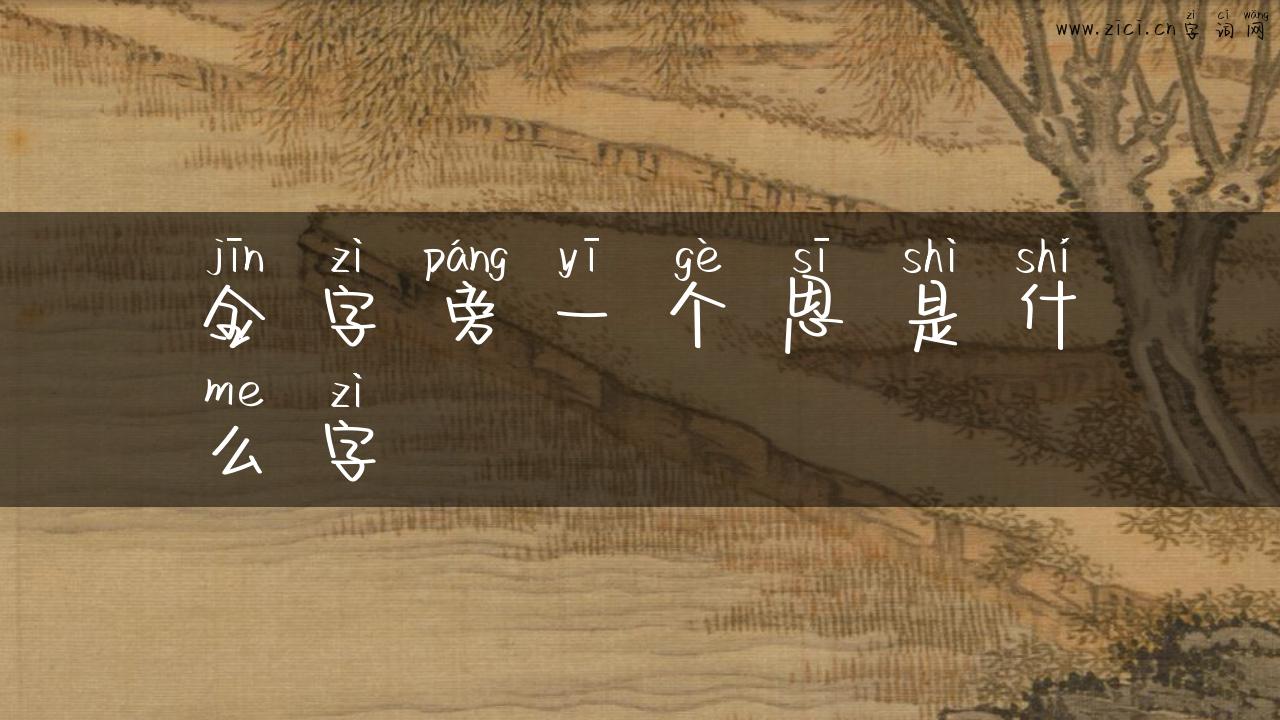 zì cí wǎng
www.zici.cn字词网
jīn zì páng yī gè sī shì shí
金字旁一个思是什
me zì
么字